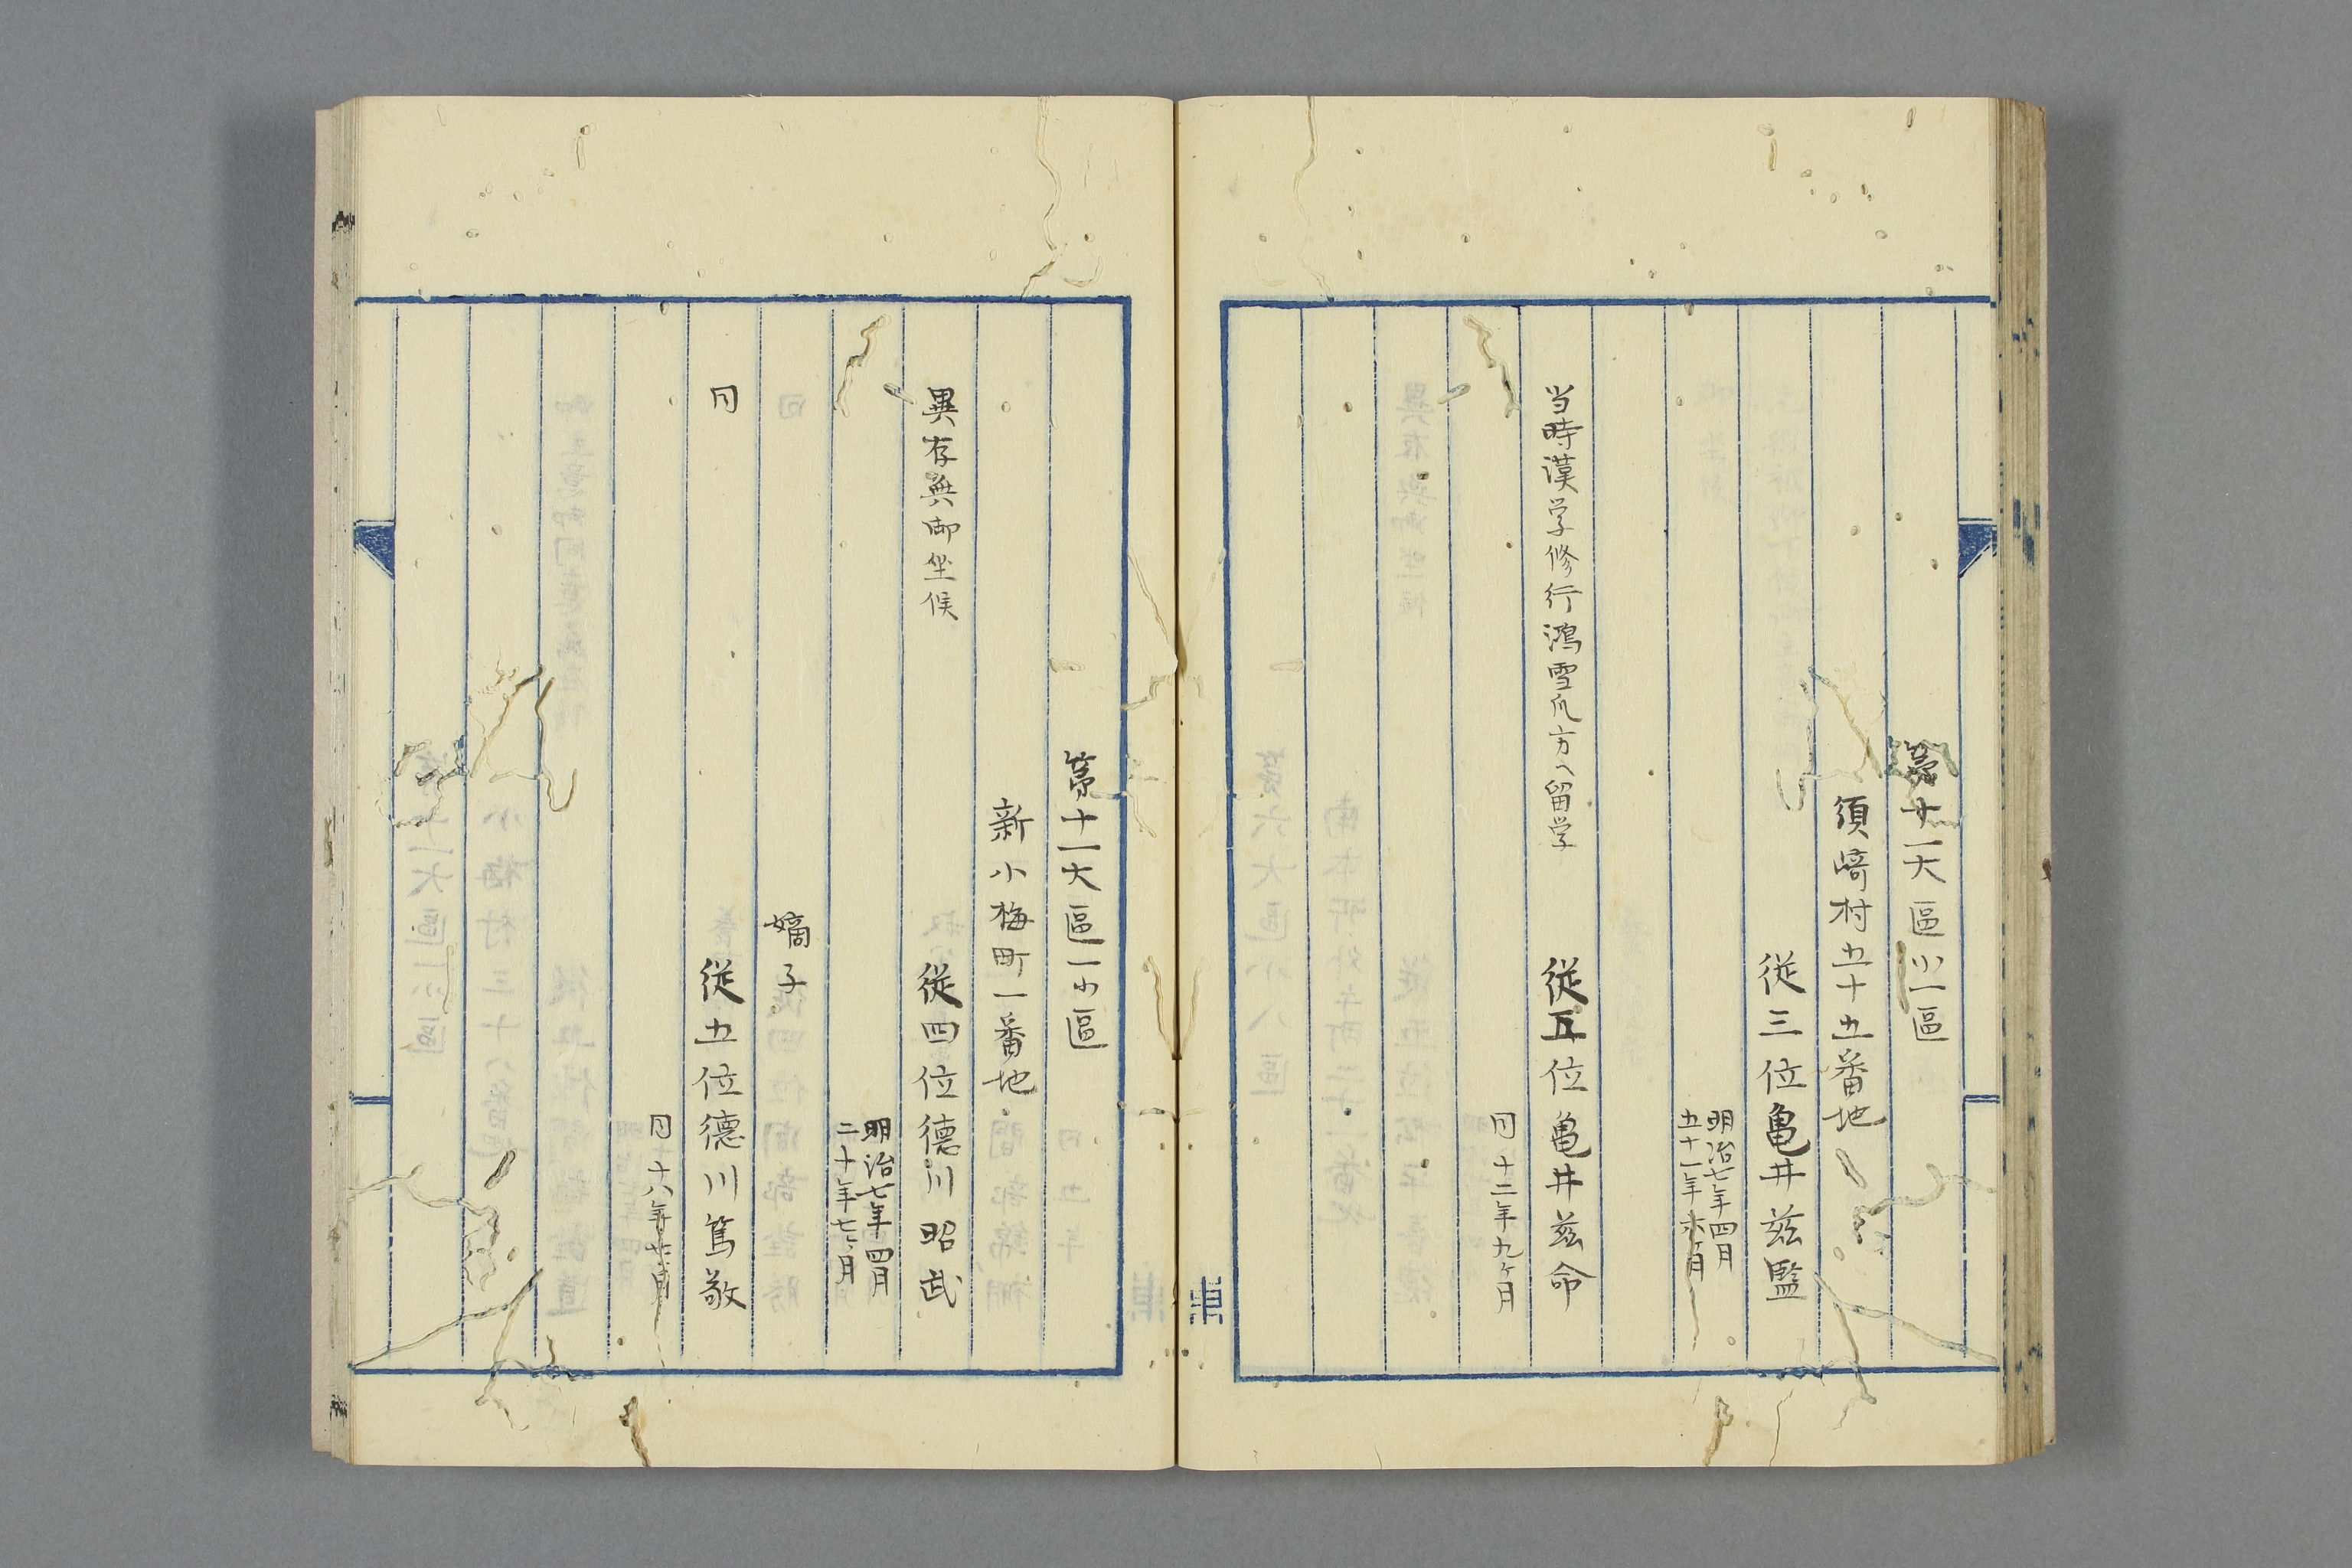 第十一大區小一區
須崎村五十五番地
従三位亀井茲監
明治七年四月
五十一年六ヶ月
当時漢学修行鴻雪爪方へ留学
従五位亀井茲命
同十二年九ヶ月
東
第十一大區一小區
新小梅町一番地
異存無御坐候
従四位徳川昭武
明治七年四月
二十年七ヶ月
嫡子
同
従五位徳川篤敬
同十八年